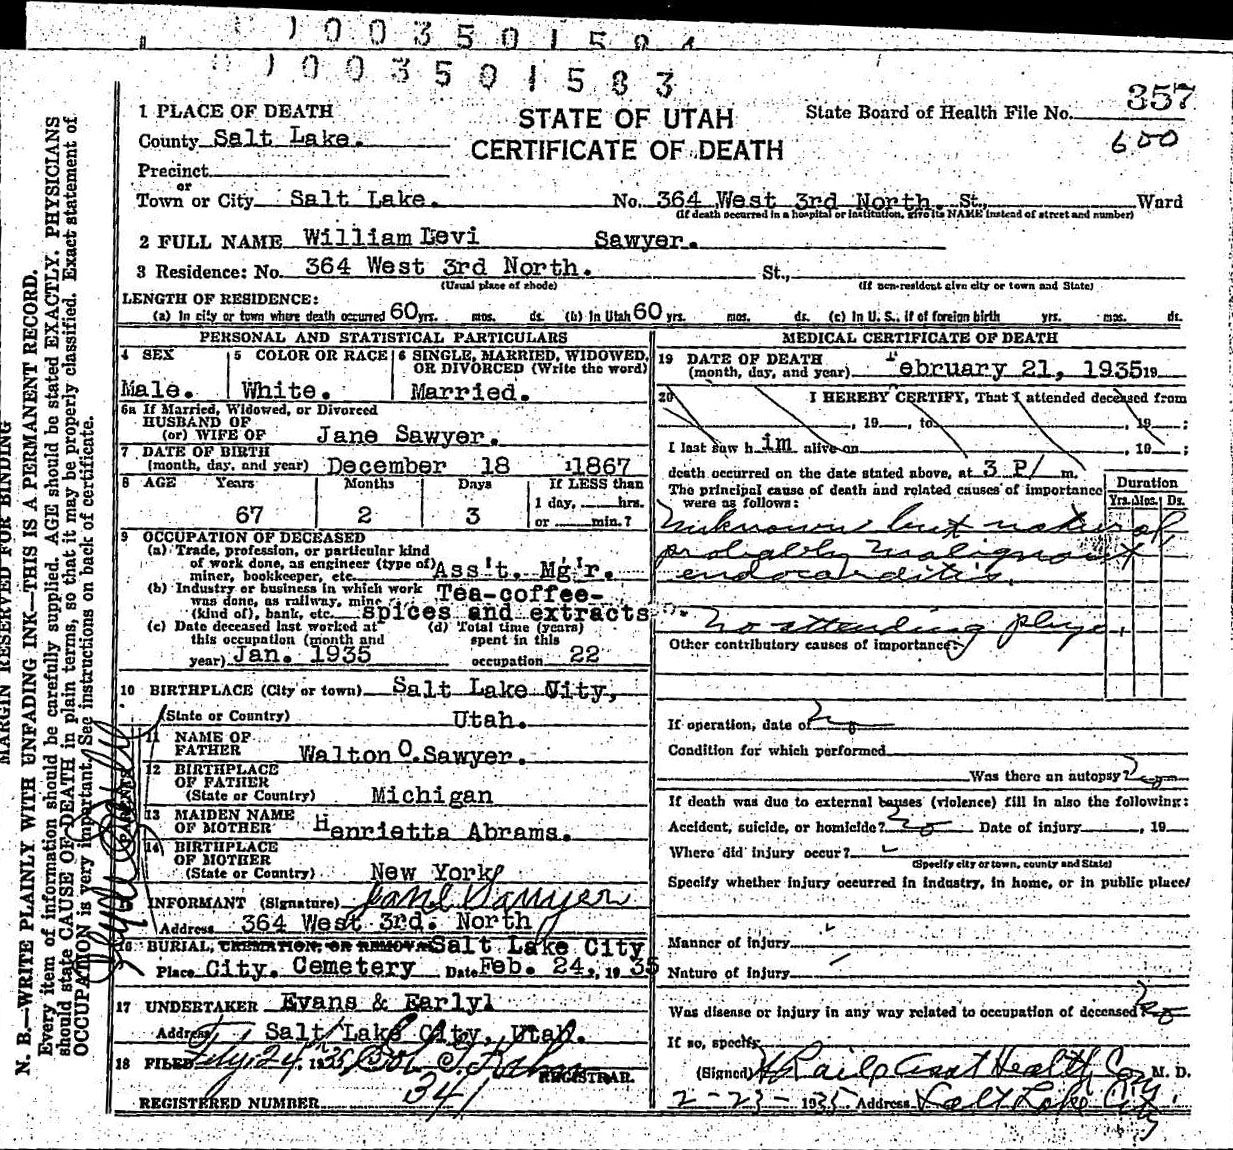 1003501584
1003501583
357
600
STATE OF UTAH
CERTIFICATE OF DEATH
State Board of Health File No.
1 PLACE OF DEATH
County Salt Lake.
Precinct
or
Town or City Salt Lake. No. 364 West 3rd North. St., Ward
(If death occurred in a hospital or institution, give its NAME instead of street and number)
2 FULL NAME William Levi Sawyer.
3 Residence: No. 364 West 3rd North. St.,
(Usual place of abode) (If non-resident give city or town and State)
LENGTH OF RESIDENCE:
(a) In city or town where death occurred 60 yrs. mos. ds. (b) In Utah 60 yrs. mos. ds. (c) In U. S., if of foreign birth yrs. mos. ds.
PERSONAL AND STATISTICAL PARTICULARS
4 SEX
Male.
5 COLOR OR RACE
White.
6 SINGLE, MARRIED, WIDOWED,
OR DIVORCED (Write the word)
Married.
6a If Married, Widowed, or Divorced
HUSBAND OF
(or) WIFE OF Jane Sawyer.
7 DATE OF BIRTH
(month, day, and year) December 18 1867
8 AGE Years Months Days If LESS than
1 day, hrs.
67 2 3 or min.?
9 OCCUPATION OF DECEASED
(a) Trade, profession, or particular kind
of work done, as engineer (type of)
miner, bookkeeper, etc. Ass't. Mg'r.
(b) Industry or business in which work Tea-coffee-
was done, as railway, mine
(kind of), bank, etc. spices and extracts
(c) Date deceased last worked at
this occupation (month and
year) Jan. 1935
(d) Total time (years)
spent in this
occupation 22
10 BIRTHPLACE (City or town) Salt Lake City,
(State or Country) Utah.
11 NAME OF
FATHER Walton O. Sawyer.
12 BIRTHPLACE
OF FATHER
(State or Country) Michigan
13 MAIDEN NAME
OF MOTHER Henrietta Abrams.
14 BIRTHPLACE
OF MOTHER
(State or Country) New York
PARENTS
INFORMANT (Signature) Jane Sawyer
Address 364 West 3rd. North
16 BURIAL, CREMATION, OR REMOVAL Salt Lake City
Place City. Cemetery Date Feb. 24., 1935
17 UNDERTAKER Evans & Earlyl
Address Salt Lake City, Utah.
18 FILED 24, 1935
REGISTRAR.
REGISTERED NUMBER 341
MEDICAL CERTIFICATE OF DEATH
19 DATE OF DEATH
(month, day, and year) February 21, 1935 19
20 I HEREBY CERTIFY, That I attended deceased from
, 19 , to , 19 ;
I last saw h im alive on , 19 ;
death occurred on the date stated above, at 3 P/ m.
The principal cause of death and related causes of importance
were as follows:
Duration
Yrs. Mos. Ds.
Unknown but natural
probably malignant
endocarditis.
No attending phys.
Other contributory causes of importance:
If operation, date of no
Condition for which performed
Was there an autopsy? no
If death was due to external causes (violence) fill in also the following:
Accident, suicide, or homicide? no Date of injury , 19
Where did injury occur?
(Specify city or town, county and State)
Specify whether injury occurred in industry, in home, or in public place/
Manner of injury
Nature of injury
Was disease or injury in any way related to occupation of deceased? no
If so, specify
(Signed) Asst Health M. D.
2-23-1935 Address Salt Lake City
MARGIN RESERVED FOR BINDING
N. B.—WRITE PLAINLY WITH UNFADING INK—THIS IS A PERMANENT RECORD.
Every item of information should be carefully supplied. AGE should be stated EXACTLY. PHYSICIANS
should state CAUSE OF DEATH in plain terms, so that it may be properly classified. Exact statement of
OCCUPATION is very important. See instructions on back of certificate.